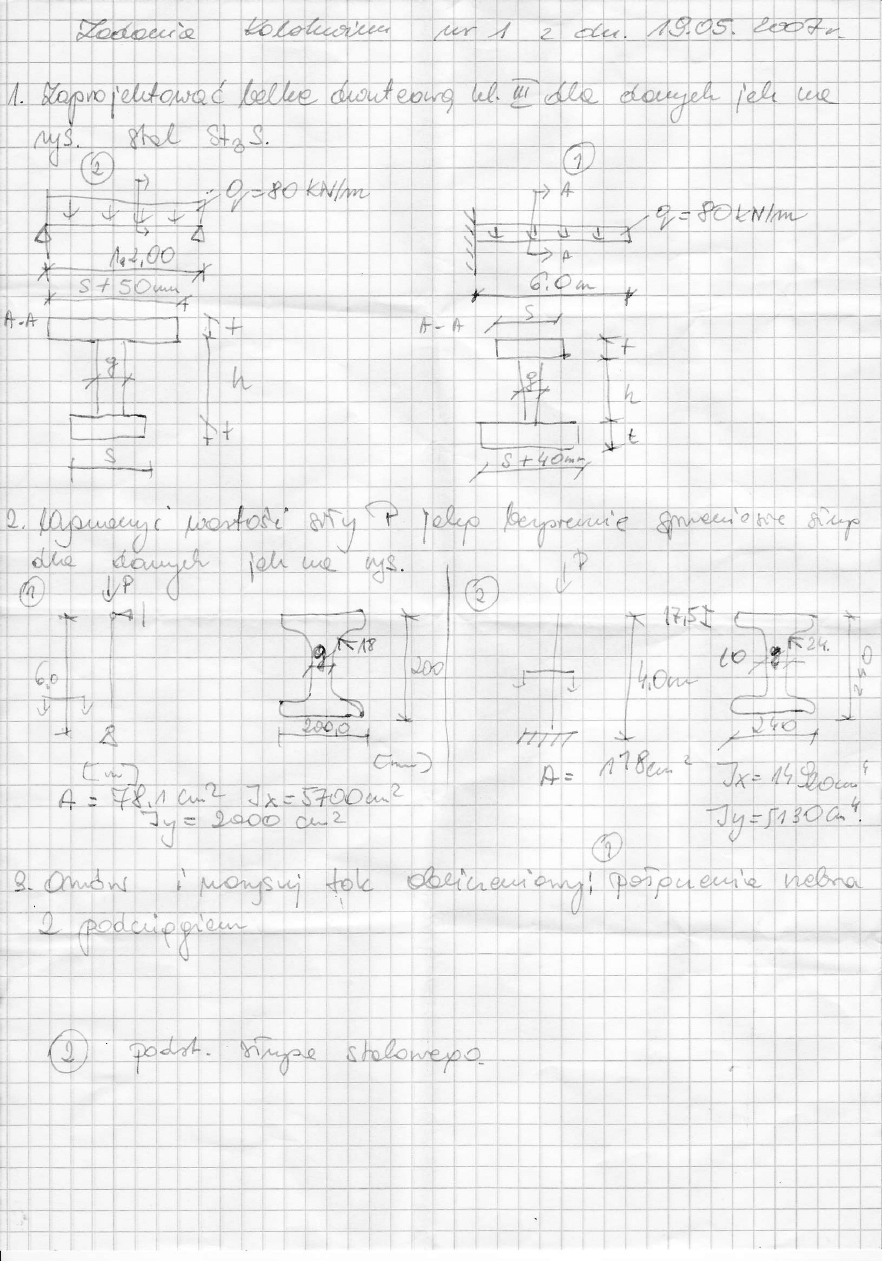 Zadania Kolokwium nr 1 z dn. 19.05.2007r.
1. Zaprojektować belkę dwuteową kl. III dla danych jak na
rys. stal St3S.
2
q=80 KN/m
12,00
s+50mm
A-A
t
g
h
t
s
1
A
q=80KN/m
A
6.0m
A-A
s
t
g
h
t
s+40mm
2. Wyznaczyć wartość siły P jaką bezpiecznie przeniesie słup
dla danych jak na rys.
1
P
6,0
(m)
18
g
200
200,0
(mm)
A = 78,1 cm² Jx=5700cm²
Jy = 2000 cm²
2
P
4,0m
17,5
24.
10
g
240
A = 118cm²
Jy=5130cm⁴.
1
3. Omów i narysuj tok obliczeniowy: połączenia żebra
z podciągiem
2 podst. słupa stalowego.